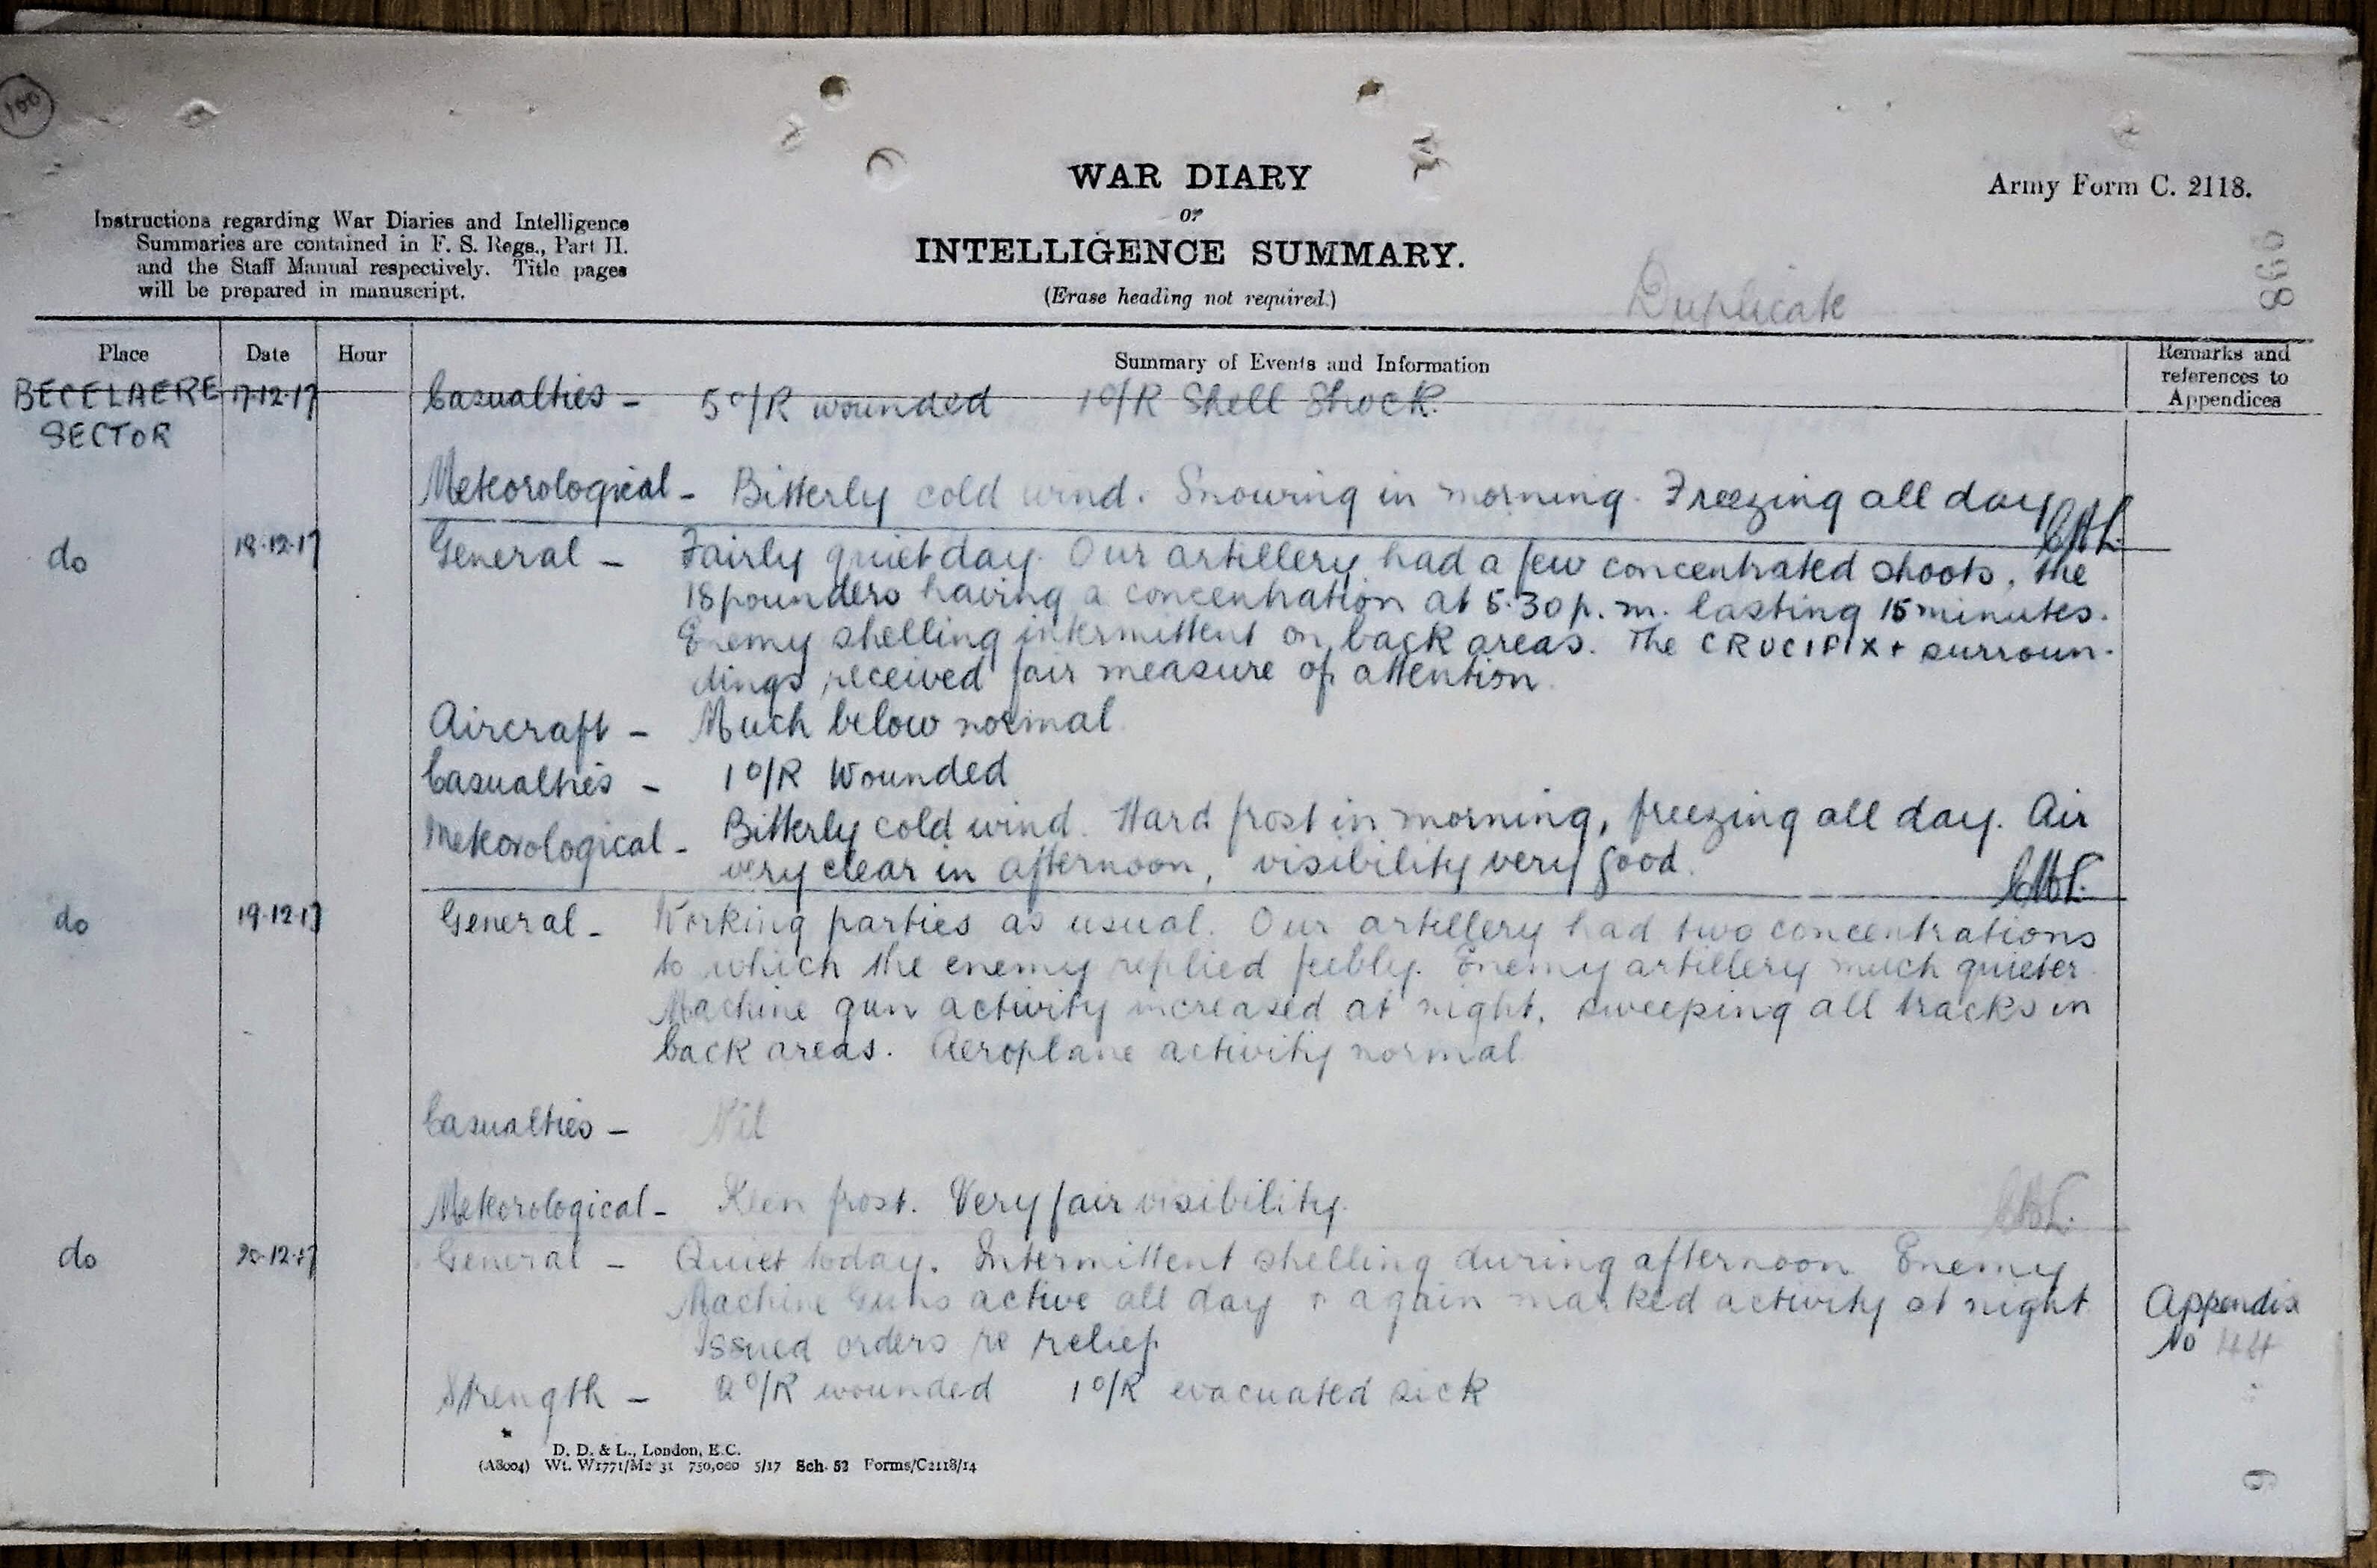 100
WAR DIARY
or
INTELLIGENCE SUMMARY.
(Erase heading not required.)
Army Form C. 2118.
Instructions regarding War Diaries and Intelligence
Summaries are contained in F. S. Regs., Part II.
and the Staff Manual respectively. Title pages
will be prepared in manuscript.
Duplicate
866
Place Date Hour Summary of Events and Information Remarks and
references to
Appendices
BECELAERE 17.12.17 Casualties - 5 O/R wounded 1 O/R Shell Shock.
SECTOR
Meteorological - Bitterly cold wind. Snowing in morning. Freezing all day
do 18.12.17 General - Fairly quiet day. Our artillery had a few concentrated shoots, the
18 pounders having a concentration at 5.30 p.m. lasting 15 minutes.
Enemy shelling intermittent on back areas. The CRUCIFIX + surroun-
dings received fair measure of attention.
Aircraft - Much below normal.
Casualties - 1 O/R Wounded
Meteorological - Bitterly cold wind. Hard frost in morning, freezing all day. Air
very clear in afternoon, visibility very good.
do 19.12.17 General - Working parties as usual. Our artillery had two concentrations
to which the enemy replied feebly. Enemy artillery much quieter.
Machine gun activity increased at night, sweeping all tracks in
back areas. Aeroplane activity normal
Casualties - Nil
Meteorological - Keen frost. Very fair visibility.
do 20.12.17 General - Quiet today. Intermittent shelling during afternoon Enemy
Machine Guns active all day + again marked activity at night Appendix
Issued orders re relief No 44
Strength - 2 O/R wounded 1 O/R evacuated sick
D. D. & L., London, E.C.
(A8004) Wt. W1771/M2 31 750,000 5/17 Sch. 52 Forms/C2118/14